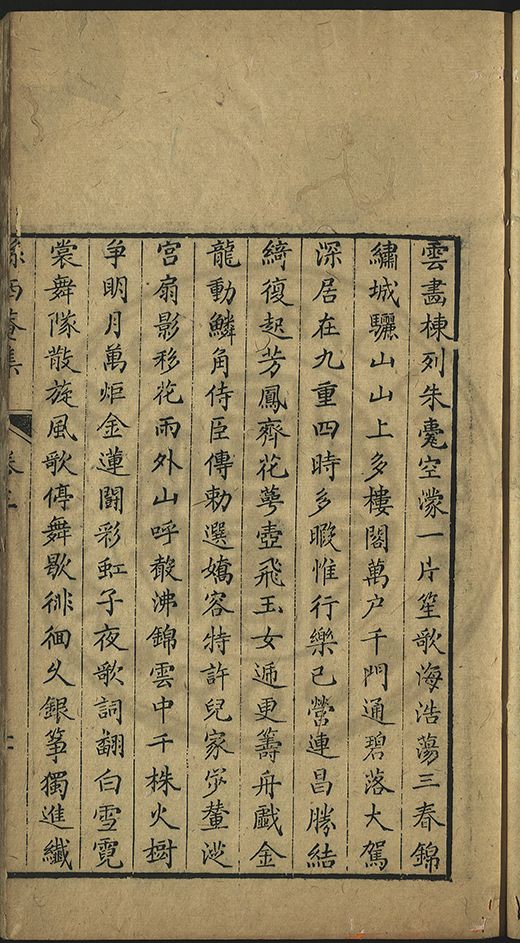 雲畵棟列朱甍空濛一片笙歌海浩蕩三春錦
繡城驪山山上多樓閣萬户千門通碧落大駕
深居在九重四時多暇惟行樂已營連昌勝結
綺復起芳鳳齊花萼壺飛玉女遞更籌舟戲金
龍動鱗角侍臣傳勅選嬌容特許兒家
宮扇影移花雨外山呼聲沸錦雲中千株火樹
争明月萬炬金蓮鬪彩虹子夜歌詞翻白雪霓
裳舞隊散旋風歌停舞歇徘徊久銀箏獨進纖
西菴集